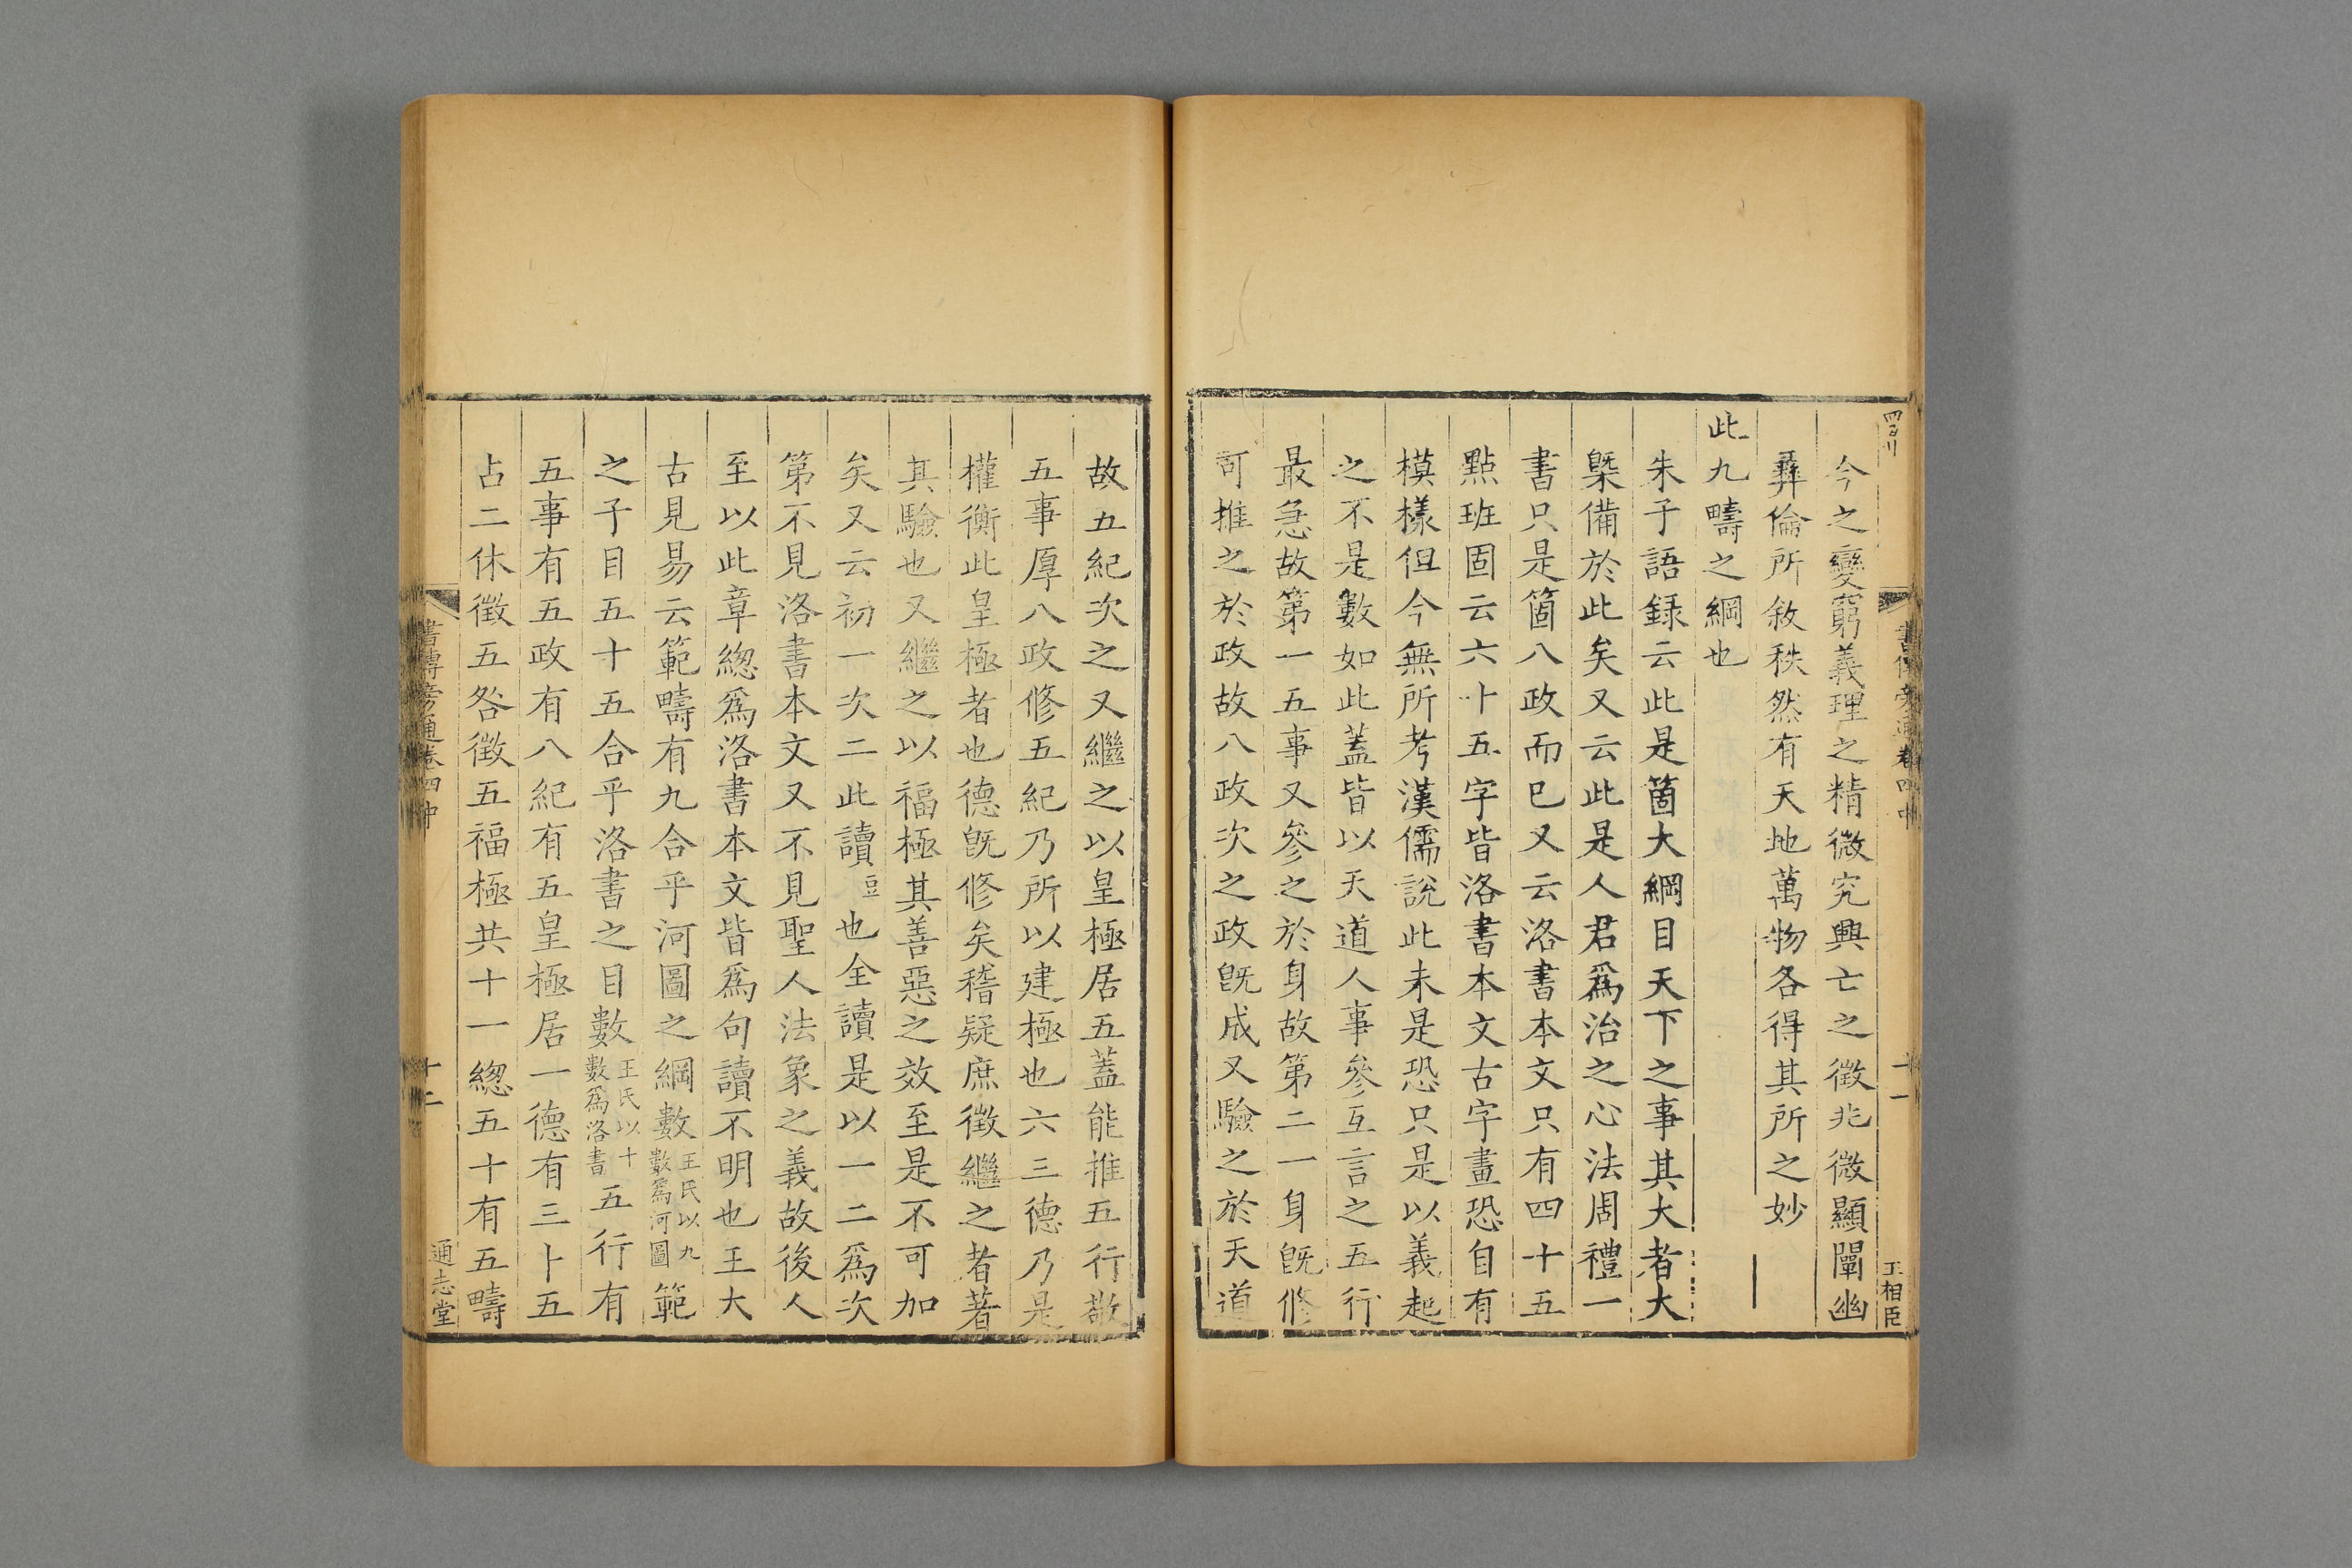 書傳旁通卷四中
十一
王相臣
今之變窮義理之精微究興亡之徵兆微顯闡幽
彞倫所敘秩然有天地萬物各得其所之妙
此九疇之綱也
朱子語録云此是箇大綱目天下之事其大者大
槩備於此矣又云此是人君爲治之心法周禮一
書只是箇八政而已又云洛書本文只有四十五
點班固云六十五字皆洛書本文古字畫恐自有
模樣但今無所考漢儒說此未是恐只是以義起
之不是數如此蓋皆以天道人事參互言之五行
最急故第一五事又參之於身故第二一身旣修
可推之於政故八政次之政旣成又驗之於天道
故五紀次之又繼之以皇極居五蓋能推五行敬
五事厚八政修五紀乃所以建極也六三德乃是
權衡此皇極者也德旣修矣稽疑庶徵繼之者著
其驗也又繼之以福極其善惡之效至是不可加
矣又云初一次二此讀豆也全讀是以一二爲次
第不見洛書本文又不見聖人法象之義故後人
至以此章緫爲洛書本文皆爲句讀不明也王大
古見易云範疇有九合乎河圖之綱數王氏以九數爲河圖範
之子目五十五合乎洛書之目數王氏以十數爲洛書五行有
五事有五政有八紀有五皇極居一德有三卜五
占二休徴五咎徴五福極共十一緫五十有五疇
書傳旁通卷四中
十二
通志堂